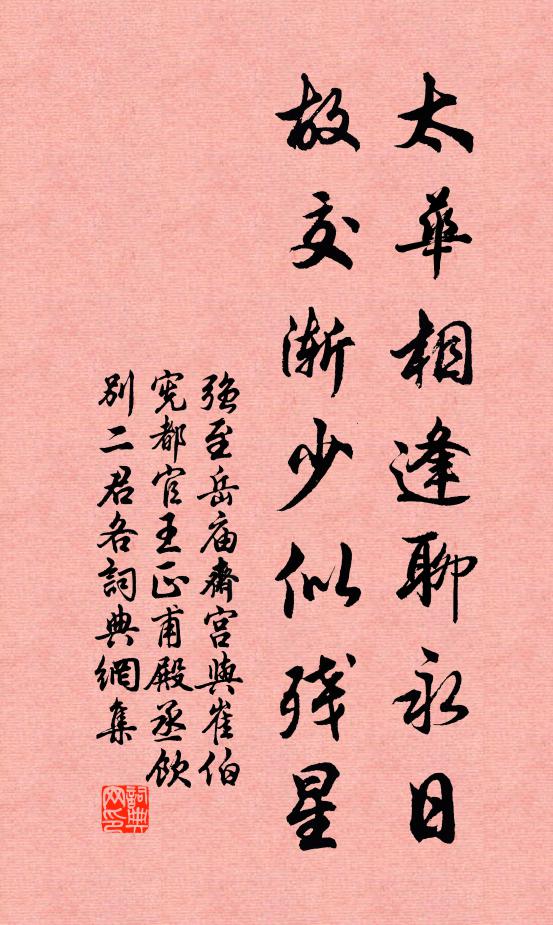 太華相逢聊永日
故交漸少似残星
强至岳庙齋宫與崔伯
宪都官王正甫殿丞飲
别二君各詞典網集
詞典網印